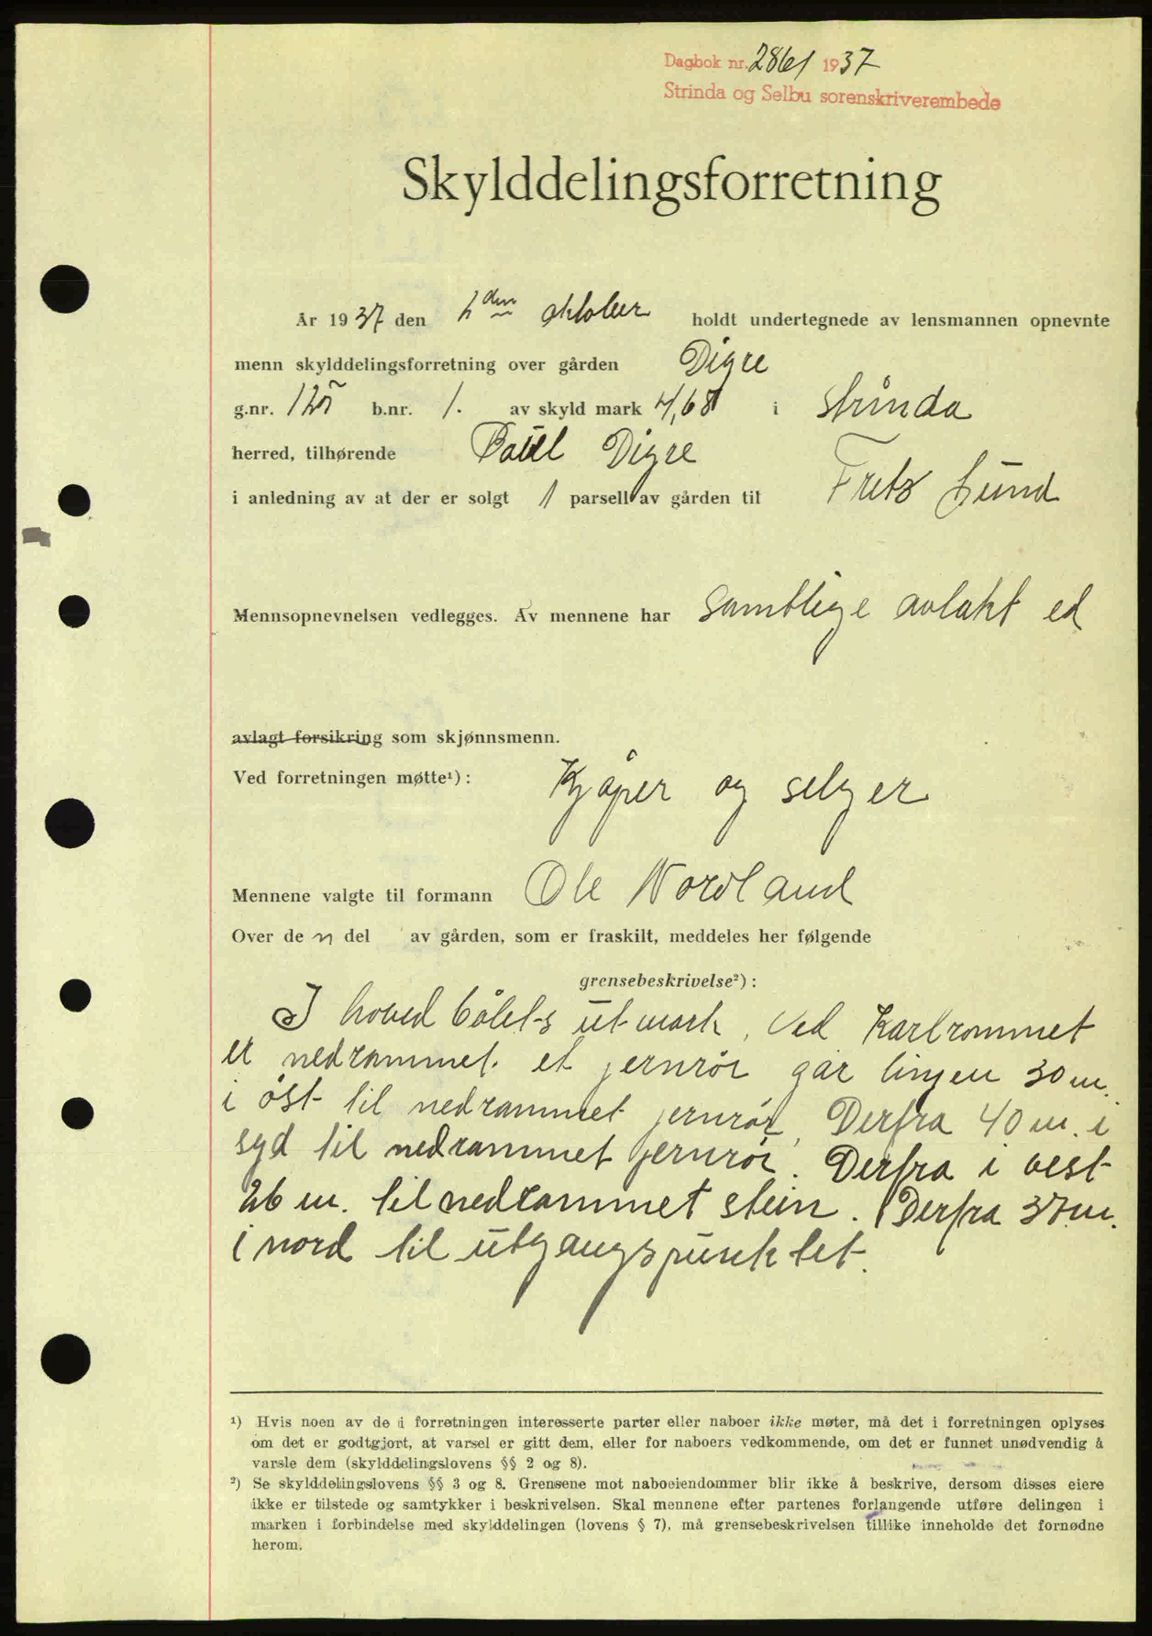 Dagbok nr. 2861 1937
Strinda og Selbu sorenskriverembede
Skylddelingsforretning
År 1937 den 2den oktober holdt undertegnede av lensmannen opnevnte
menn skylddelingsforretning over gården Digre
g.nr. 125 b.nr. 1. av skyld mark 4,68 i Strinda
herred, tilhørende Paul Digre
i anledning av at der er solgt 1 parsell av gården til Fritz Lund
Mennsopnevnelsen vedlegges. Av mennene har samtlige avlakt ed
avlagt forsikring som skjønnsmenn.
Ved forretningen møtte¹): Kjøper og selger
Mennene valgte til formann Ole Nordland
Over de n del av gården, som er fraskilt, meddeles her følgende
grensebeskrivelse²):
I hovedbølets utmark. Ved Kartrommet
et nedrammet et jernrør går linjen 30 m.
i øst til nedrammet jernrør, Derfra 40 m. i
syd til nedrammet jernrør. Derfra i vest
26 m. til nedrammet stein. Derfra 37 m.
i nord til utgangspunktet.
¹) Hvis noen av de i forretningen interesserte parter eller naboer ikke møter, må det i forretningen oplyses
om det er godtgjort, at varsel er gitt dem, eller for naboers vedkommende, om det er funnet unødvendig å
varsle dem (skylddelingslovens §§ 2 og 8).
²) Se skylddelingslovens §§ 3 og 8. Grensene mot naboeiendommer blir ikke å beskrive, dersom disses eiere
ikke er tilstede og samtykker i beskrivelsen. Skal mennene efter partenes forlangende utføre delingen i
marken i forbindelse med skylddelingen (lovens § 7), må grensebeskrivelsen tillike inneholde det fornødne
herom.